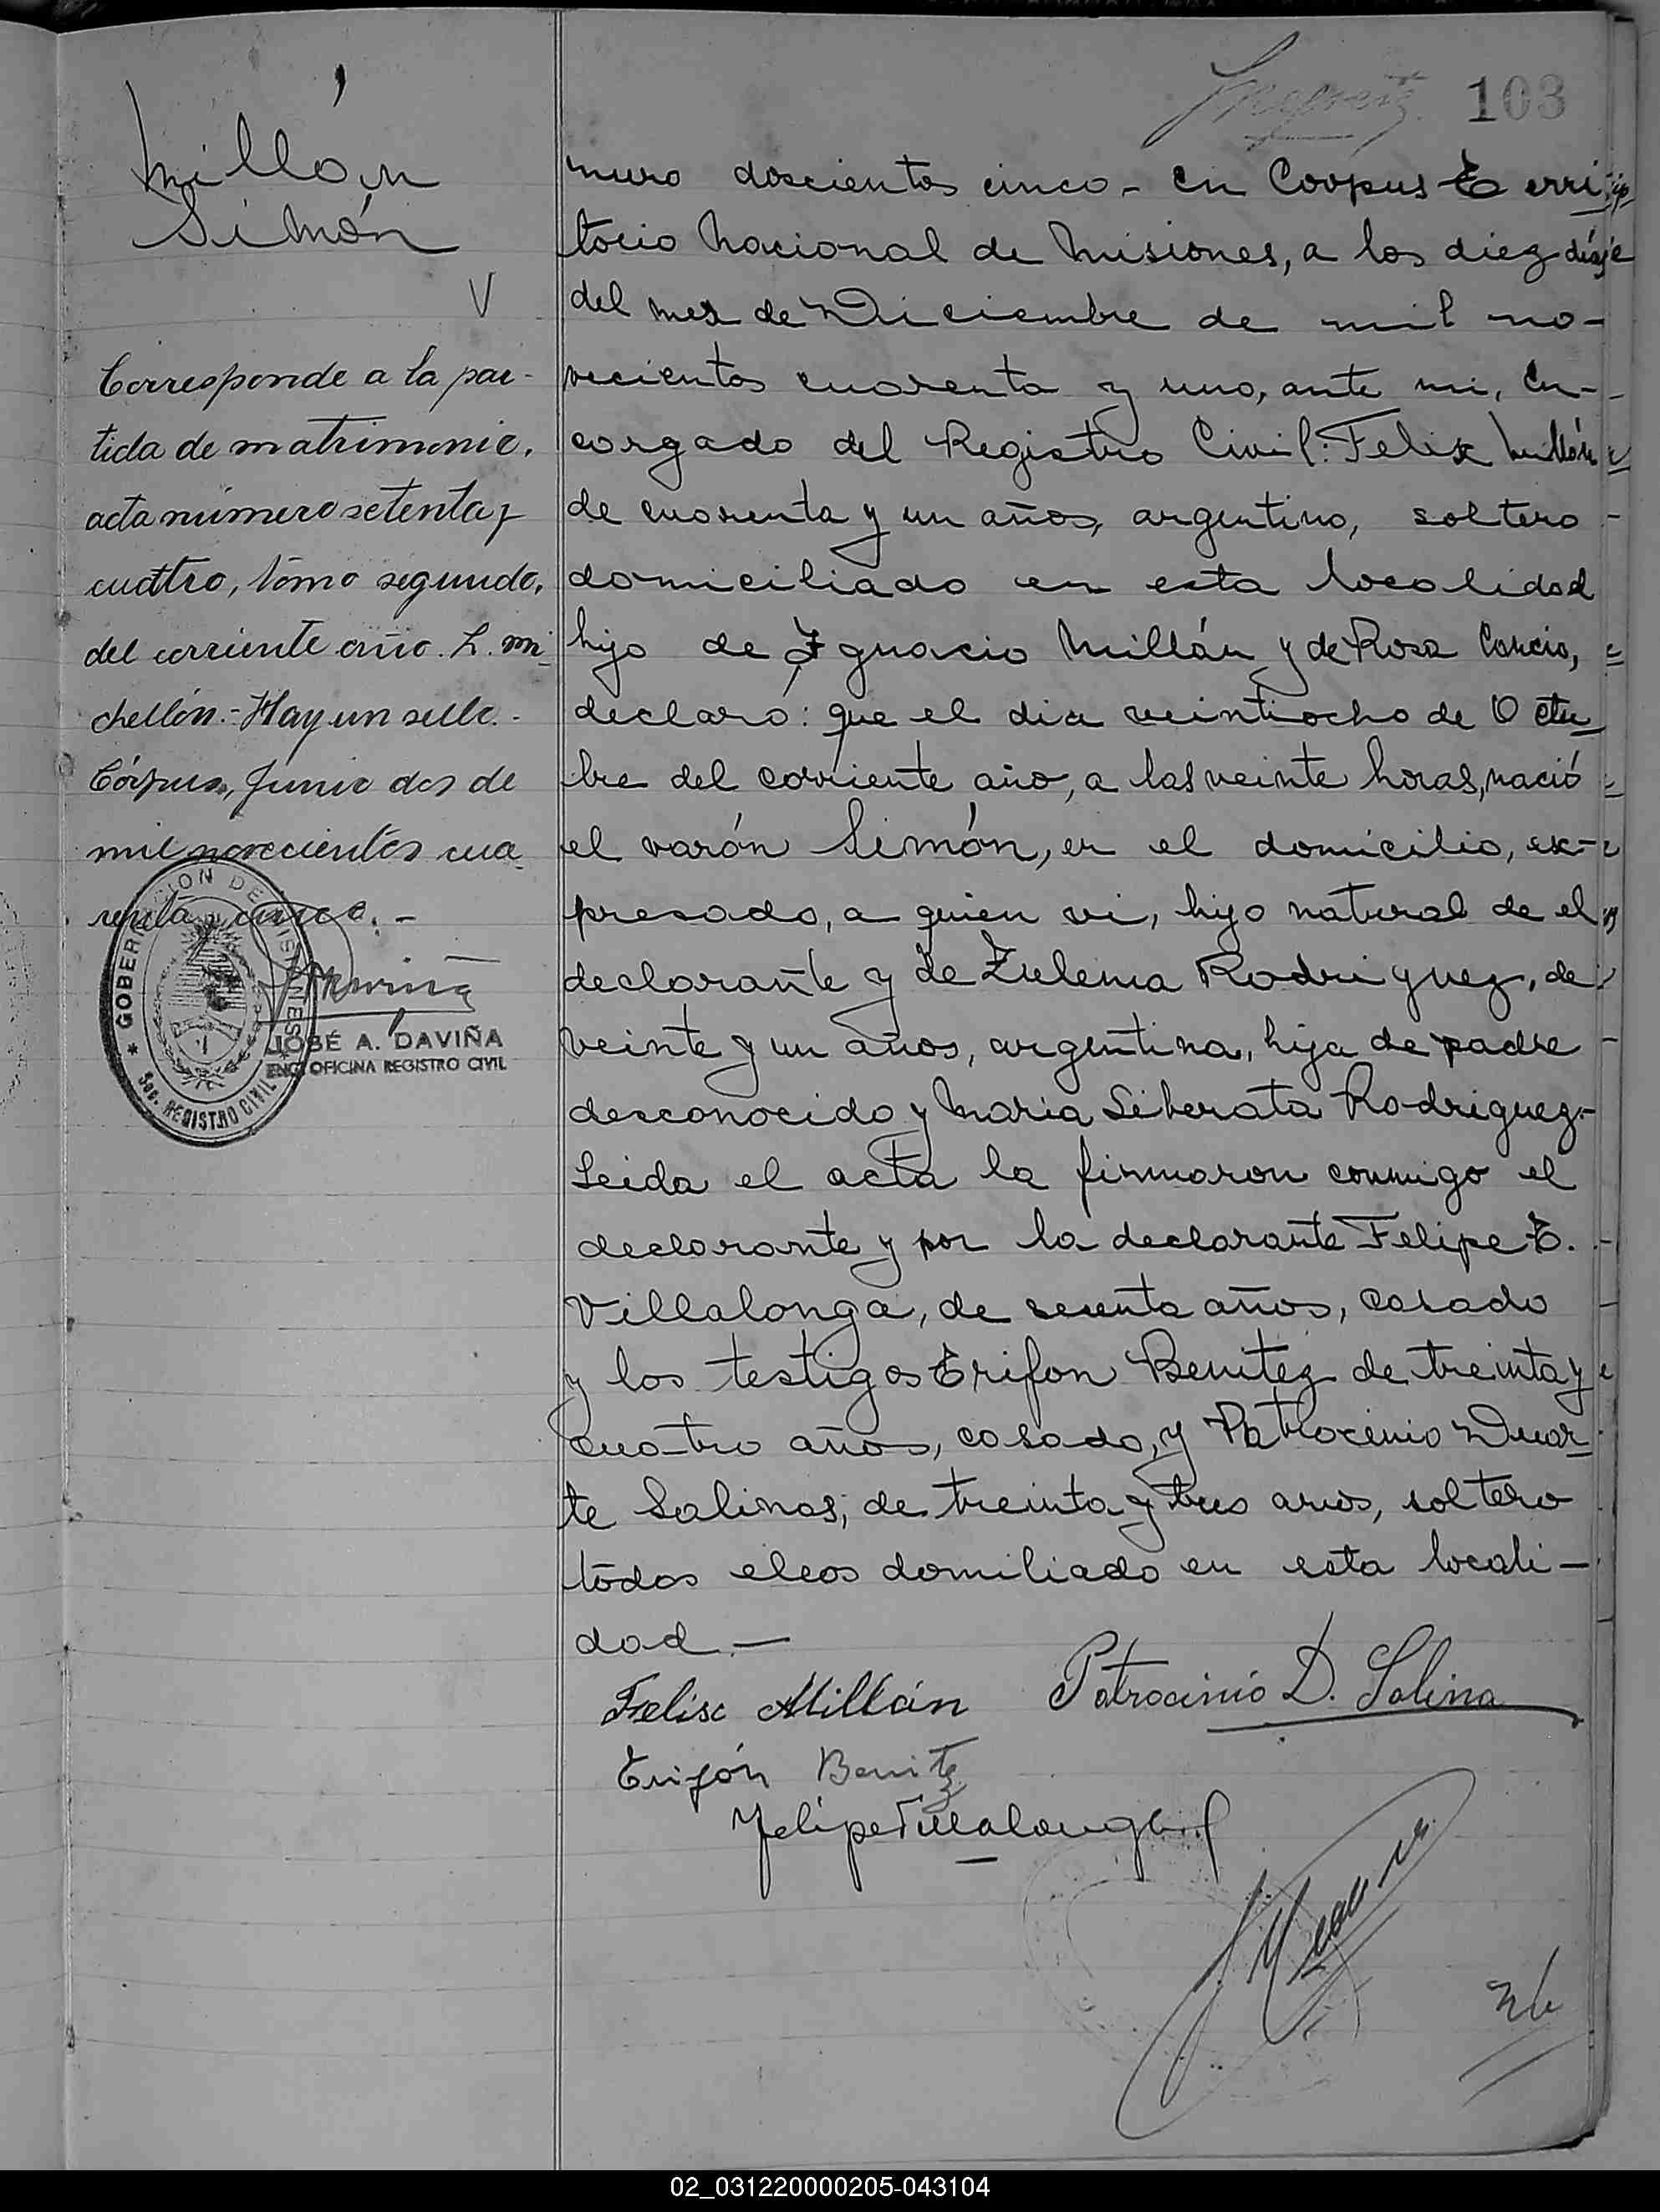 103
Millán
Simón
V
Corresponde a la par-
tida de matrimonio,
acta número setenta y
cuatro, tomo segundo,
del corriente año. L. Mi
chellón.- Hay un sello.-
Córpus, Junio dos de
mil novecientos cua
renta y cinco.-
GOBERNACION DE MISIONES
Sec. REGISTRO CIVIL
JOSÉ A. DAVIÑA
ENC. OFICINA REGISTRO CIVIL
mero doscientos cinco - En Corpus Terri
torio Nacional de Misiones, a los diez días
del mes de Diciembre de mil no-
vecientos cuarenta y uno, ante mi, En-
cargado del Registro Civil: Felix Millán
de cuarenta y un años, argentino, soltero
domiciliado en esta localidad
hijo de Ignacio Millán y de Rosa
declaró: que el dia veintiocho de Octu
bre del corriente año, a las veinte horas, nació
el varón Simón, en el domicilio, ex-
presado, a quien vi, hijo natural de el
declarante y de Zulema Rodriguez, de
veinte y un años, argentina, hija de padre
desconocido y Maria Liberata Rodriguez.-
Leida el acta la firmaron conmigo el
declarante y por la declarante Felipe E.
Villalonga, de sesenta años, casado
y los testigos Erifon Benitez de treinta y
cuatro años, casado, y Patrocinio Duar
te Salinas, de treinta y tres años, soltero
todos ellos domiliado en esta locali-
dad.-
Felix Millán Patrocinio D. Salina
Erifón Benitez
Felipe Villalonga
02_031220000205-043104